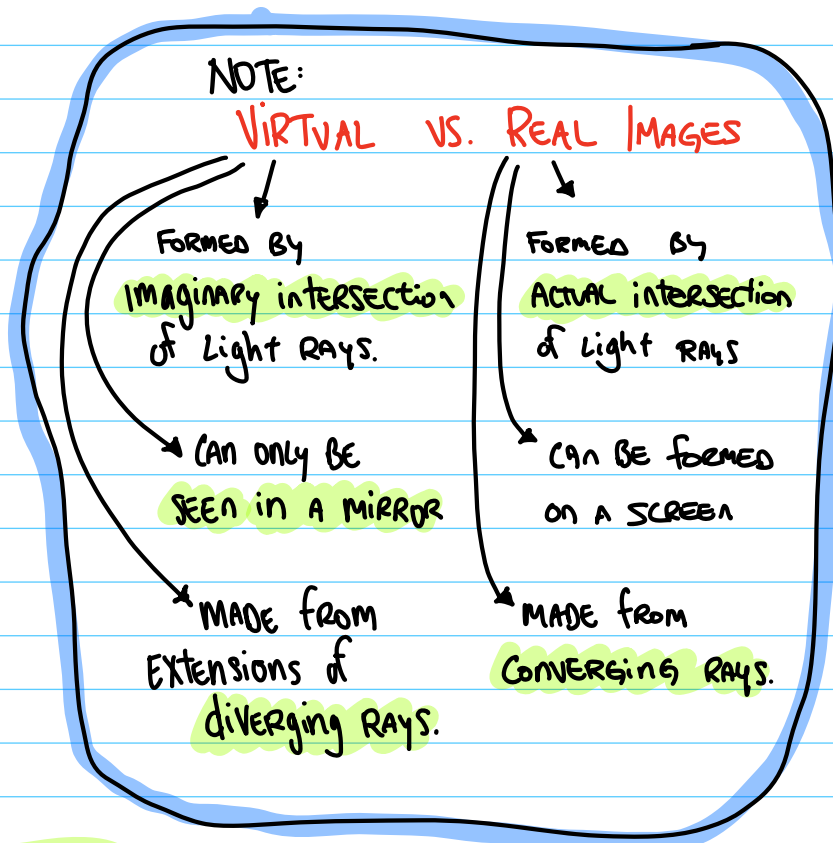 NOTE:
VIRTUAL VS. REAL IMAGES
FORMED BY
Imaginary intersection
of Light RAYS.
CAN ONLY BE
SEEN in A MIRROR
MADE from
Extensions of
diverging RAYS.
FORMED By
ACTUAL intersection
of Light RAYS
CAN BE formed
on A SCREEN
MADE from
CONVERGING RAYS.